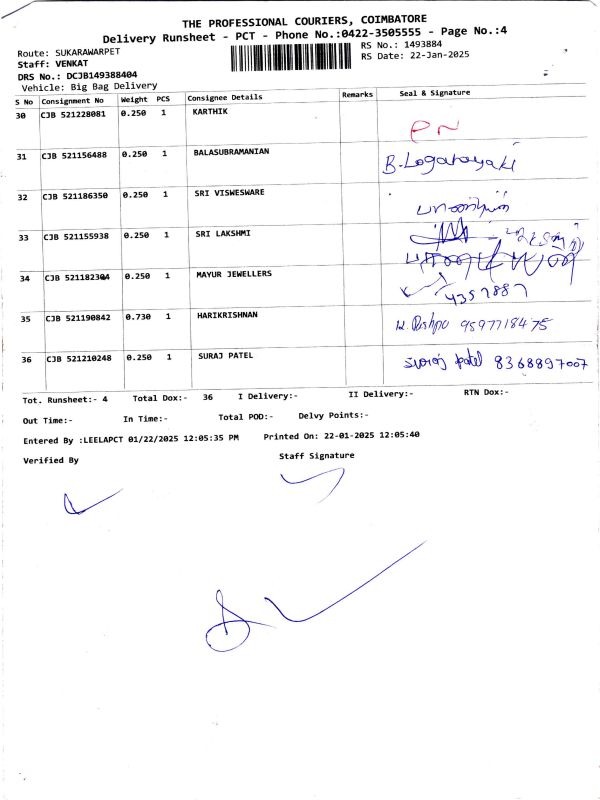 THE PROFESSIONAL COURIERS, COIMBATORE
Delivery Runsheet - PCT - Phone No.:0422-3505555 - Page No.:4
Route: SUKARAWARPET
RS No.: 1493884
Staff: VENKAT
RS Date: 22-Jan-2025
DRS No.: DCJB149388404
Vehicle: Big Bag Delivery
S No Consignment No Weight PCS Consignee Details Remarks Seal & Signature
30 CJB 521228081 0.250 1 KARTHIK
31 CJB 521156488 0.250 1 BALASUBRAMANIAN B. Loganayaki
32 CJB 521186350 0.250 1 SRI VISWESWARE
33 CJB 521155938 0.250 1 SRI LAKSHMI
34 CJB 521182304 0.250 1 MAYUR JEWELLERS
35 CJB 521190842 0.730 1 HARIKRISHNAN 9597718475
36 CJB 521210248 0.250 1 SURAJ PATEL suraj patel 8368897007
Tot. Runsheet:- 4 Total Dox:- 36 I Delivery:- II Delivery:- RTN Dox:-
Out Time:- In Time:- Total POD:- Delvy Points:-
Entered By :LEELAPCT 01/22/2025 12:05:35 PM Printed On: 22-01-2025 12:05:40
Verified By Staff Signature